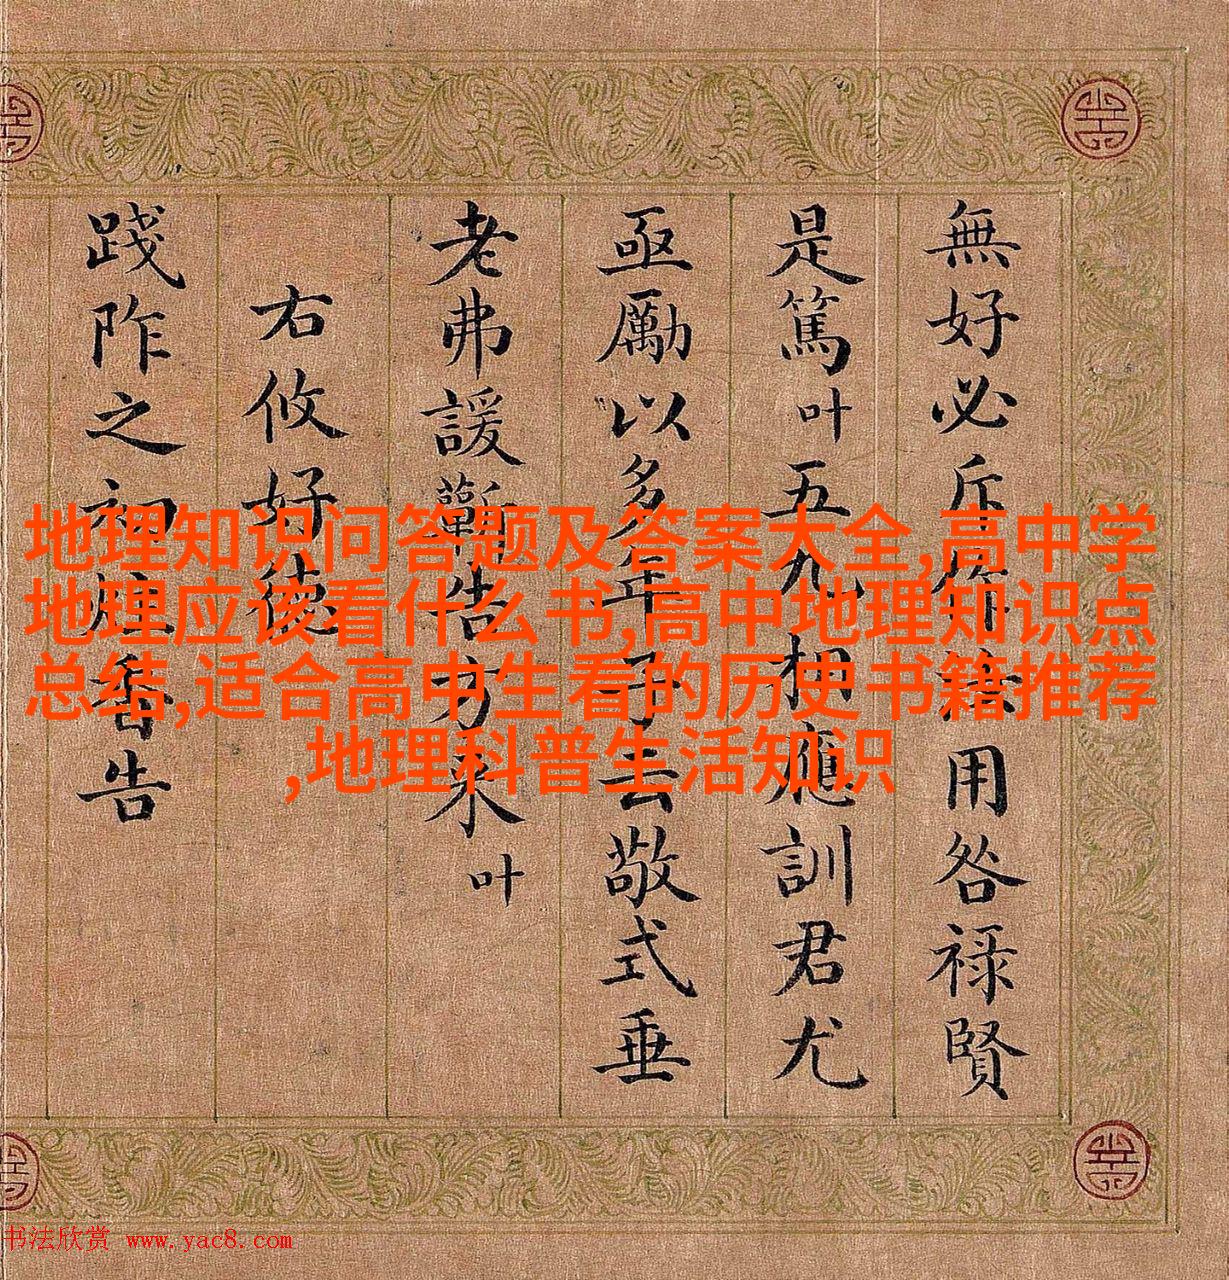 無好必斥用咎禄賢
是篤叶五九相應訓君尤
亟勵以多年子去敬式垂
老弗諼蘄告方來叶
右攸好德
踐阼之初告
地理知识问答题及答案大全,高中学
地理应该看什么书,高中地理知识点
总结,适合高中生看的历史书籍推荐
,地理科普生活知识
书法欣赏 www.yac8.com